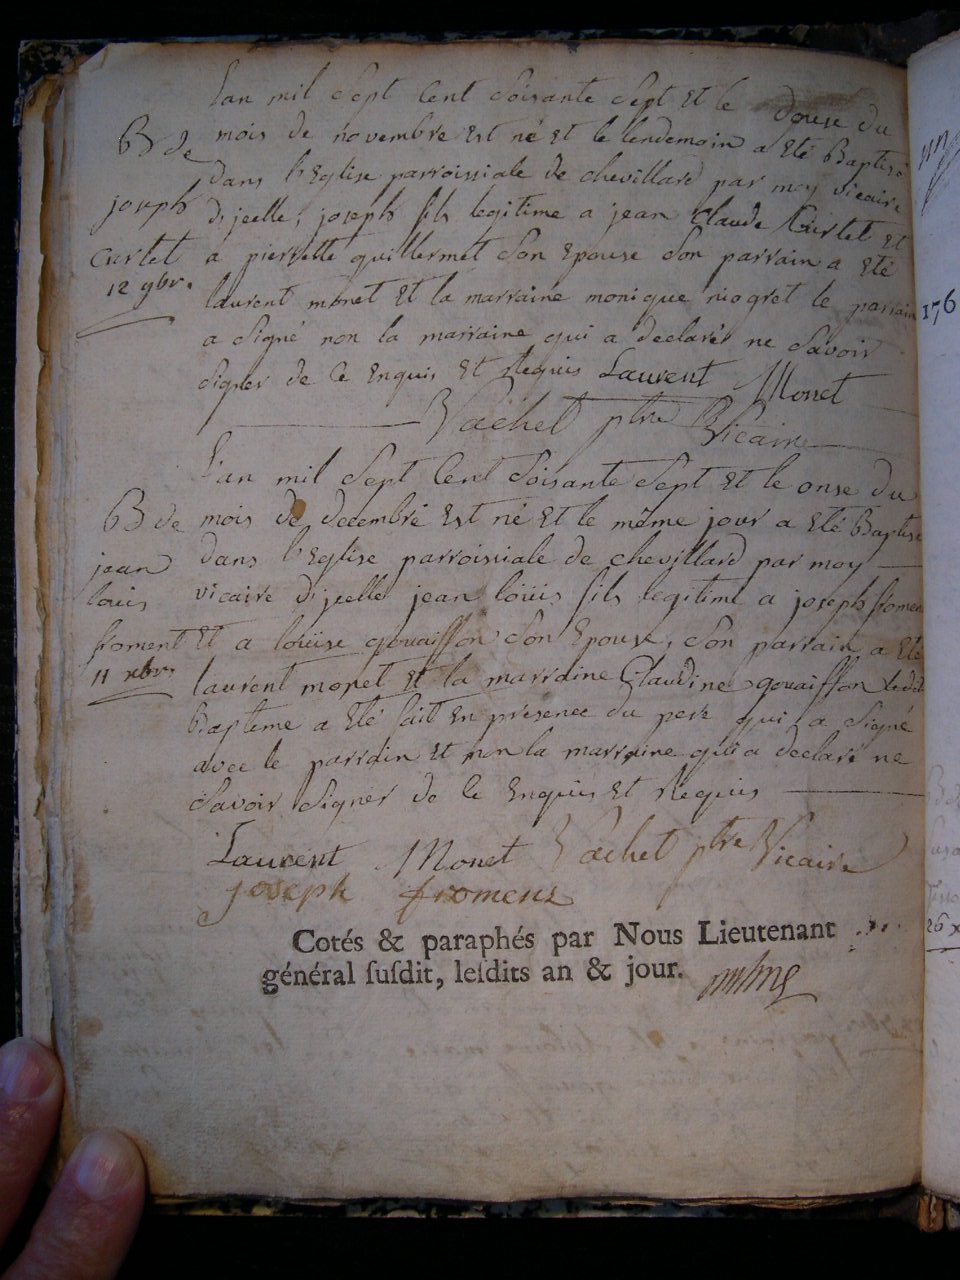 L'an mil Sept Cent Soisante Sept Et le douse du
B de
joseph
Curtet
12 9bre.
mois de novembre Est né Et le lendemain a Eté Baptisé
dans l'Eglise parroissiale de chevillard par moy vicaire
d'icelle, joseph fils legitime a jean Claude Curtet Et
a pierrette guillermet Son Epouse Son parrain a Eté
laurent monet Et la marraine monique niogret le parrain
a Signé non la marraine qui a declaré ne Savoir
Signer de Ce Enquis Et Requis Laurent Monet
Vachet ptre Vicaire
L'an mil Sept Cent Soisante Sept Et le onse du
B de
jean
louis
froment
11 xbre.
mois de decembre Est né Et le même jour a Eté Baptisé
dans l'Eglise parroissiale de chevillard par moy
vicaire d'icelle jean loüis fils legitime a joseph froment
Et a loüise gouaiffon Son Epouse, Son parrain a Eté
laurent monet Et la marraine Claudine gouaiffon ledit
Bapteme a Eté fait En presence du pere qui a Signé
avec le parrain Et non la marraine qui a declaré ne
Savoir Signer de Ce Enquis Et Requis
Laurent Monet Vachet ptre Vicaire
joseph froment
Cotés & paraphés par Nous Lieutenant
général ſuſdit, leſdits an & jour.
176
26 x